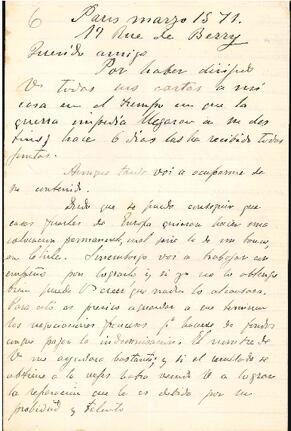 6 Paris marzo 15 71.
17 Rue de Berry
Querido amigo
Por haber dirijido
V todas sus cartas a mi
casa en el tiempo en que la
guerra impedia llegaran a su des
tino, hace 6 dias las he recibido todas
juntas.
Aunque tarde voi a ocuparme de
su contenido.
Dudo que se pueda conseguir que
casas fuertes de Europa quieran hacer una
colocacion permanente, cual seria la de un banco,
en Chile. Sin embargo voi a trabajar con
empeño por lograrlo i si yo no lo obtengo
bien puede V creer que nadie lo alcanzara.
Para esto es preciso aguardar a que terminen
las negociaciones francesas pa hacerse de fondos
con que pagar la indemnizacion. El nombre de
V me ayudara bastante, y si el resultado se
obtiene a la vejez habra venido V a lograr
la reparacion que le es debida por su
probidad y talento